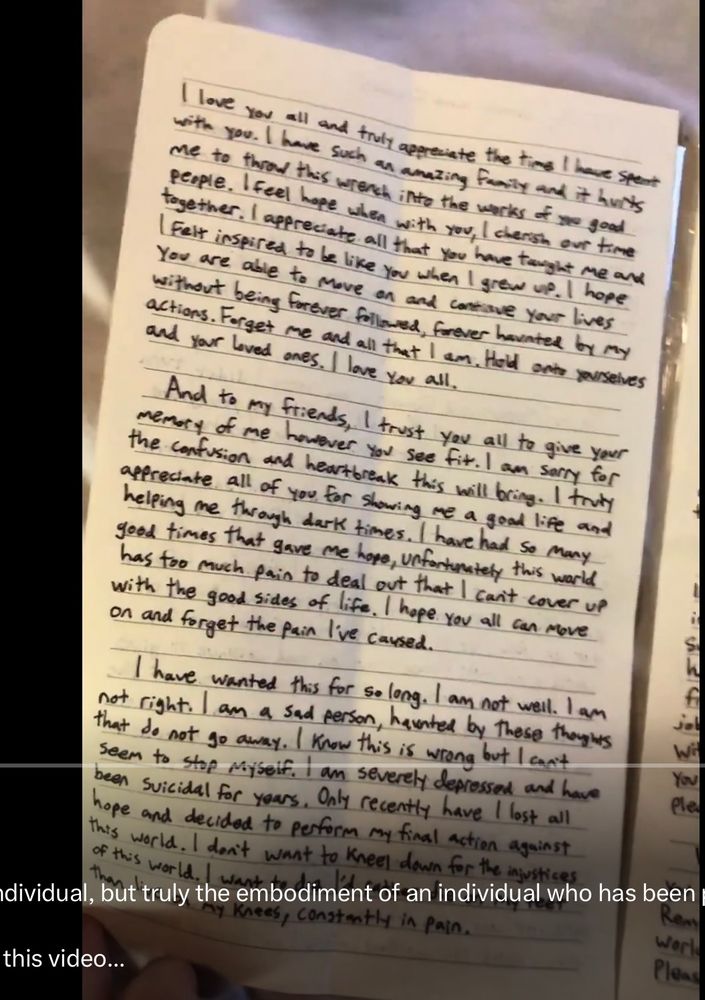 I love you all and truly appreciate the time I have spent
with you. I have such an amazing family and it hurts
me to throw this wrench into the works of you good
people. I feel hope when with you, I cherish our time
together. I appreciate all that you have taught me and
I felt inspired to be like you when I grew up. I hope
You are able to move on and continue your lives
without being forever followed, forever haunted by my
actions. Forget me and all that I am. Hold onto yourselves
and your loved ones. I love you all.
And to my friends, I trust you all to give your
memory of me however you see fit. I am sorry for
the confusion and heartbreak this will bring. I truly
appreciate all of you for showing me a good life and
helping me through dark times. I have had so many
good times that gave me hope, unfortunately this world
has too much pain to deal out that I can't cover up
with the good sides of life. I hope you all can move
on and forget the pain I've caused.
I have wanted this for so long. I am not well. I am
not right. I am a sad person, haunted by these thoughts
that do not go away. I know this is wrong but I can't
seem to stop myself. I am severely depressed and have
been suicidal for years. Only recently have I lost all
hope and decided to perform my final action against
this world. I don't want to kneel down for the injustices
of this world. I want to
ndividual, but truly the embodiment of an individual who has been
than my knees, constantly in pain.
this video...